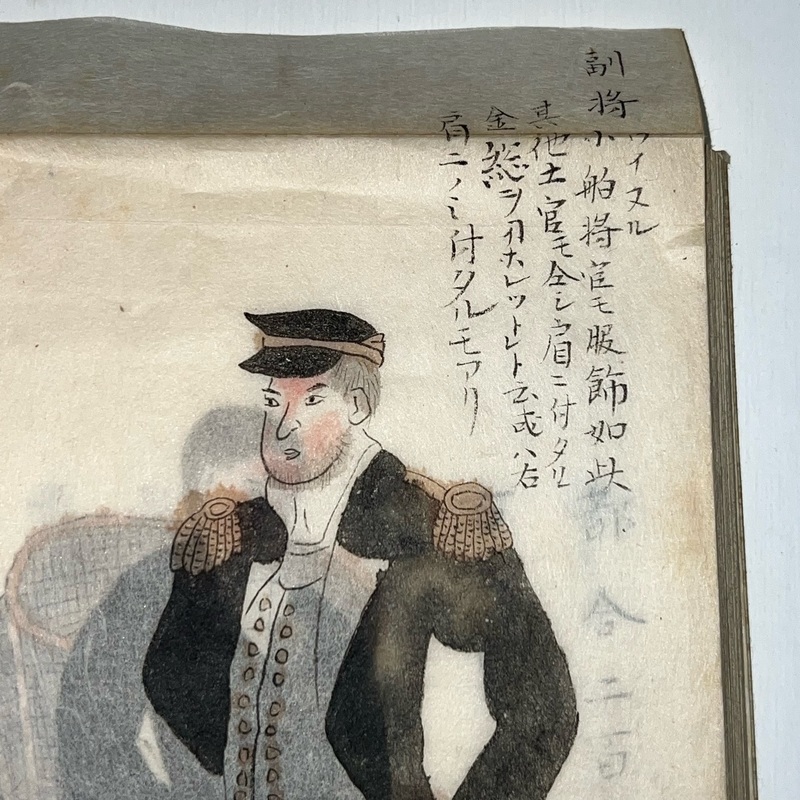 副将ワイヌル
小舶将官モ服飾如此
其他士官モ全シ肩ニ付タル
金総ヲヲホレットレト云或ハ右
肩ニノミ付タルモアリ
合二百